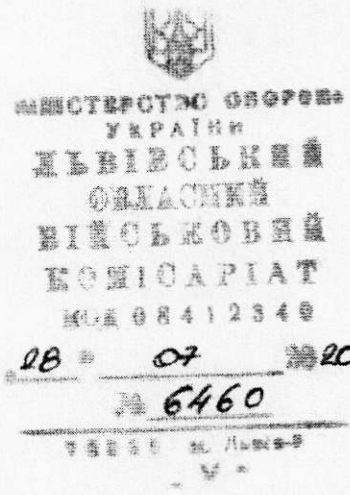 МІНІСТЕРСТВО ОБОРОНИ
УКРАЇНИ
ЛЬВІВСЬКИЙ
ОБЛАСНИЙ
ВІЙСЬКОВИЙ
КОМІСАРІАТ
КОД 08412340
"28" 07 20
№ 6460
м. Львів-8